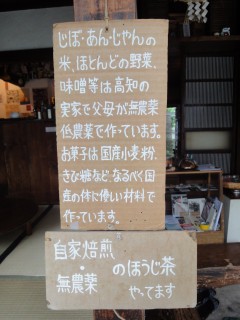 じぼ・あん・じゃんの
米、ほとんどの野菜、
味噌等は高知の
実家で父母が無農薬
低農薬で作っています。
お菓子は国産小麦粉、
きび糖など、なるべく国
産の体に優しい材料で
作っています。
自家焙煎
・
無農薬
のほうじ茶
やってます